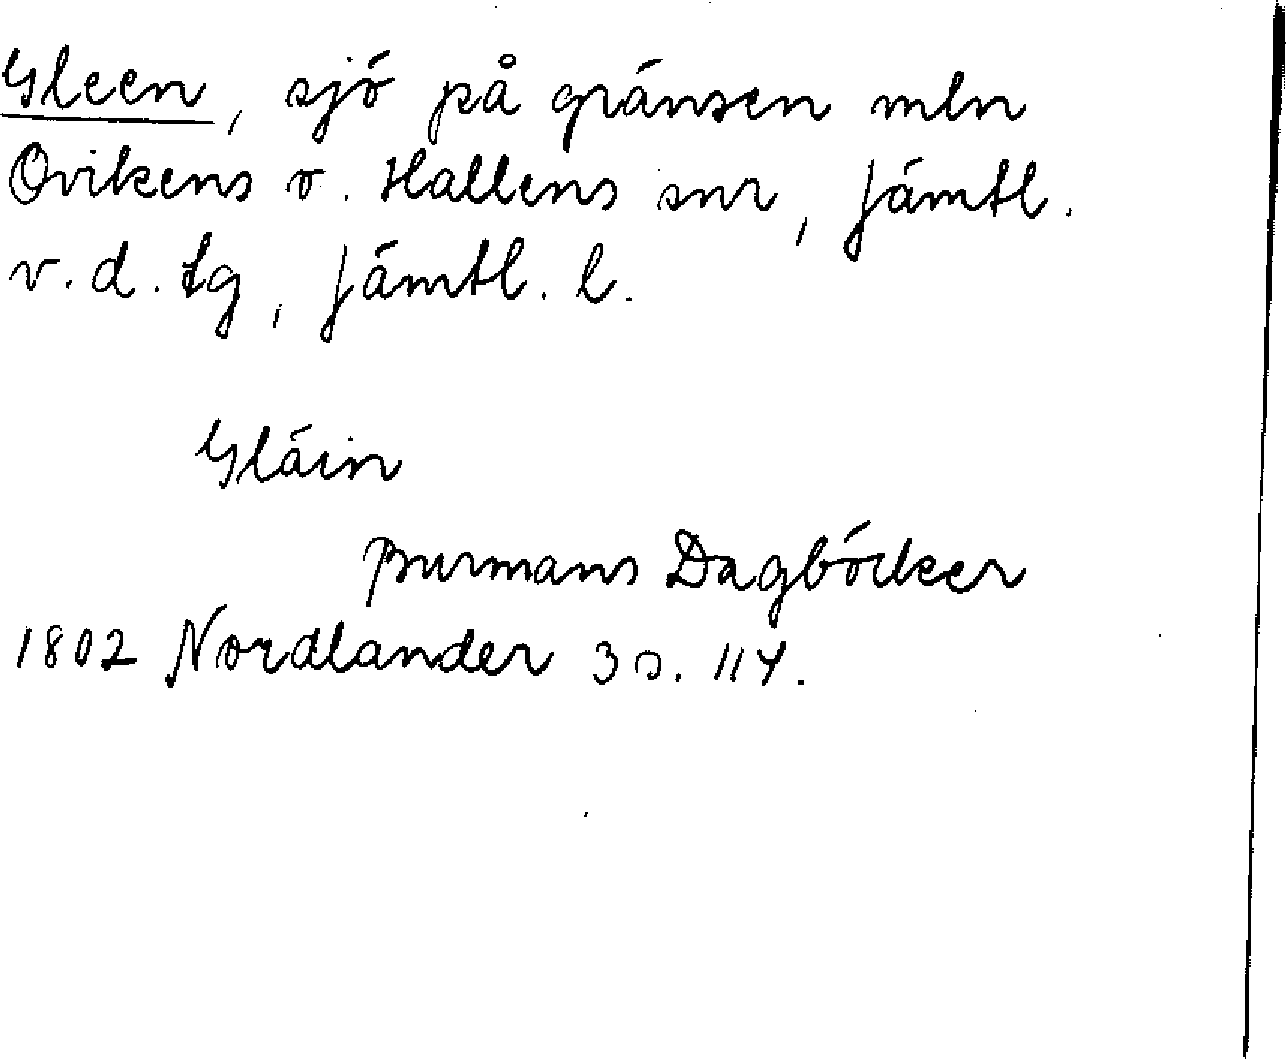 Gleen, sjö på gränsen mln
Ovikens o. Hallens snr, Jämtl.
v. d. tg, Jämtl. l.
Gläin
Burmans Dagböcker
1802 Nordlander 3 s. 114.